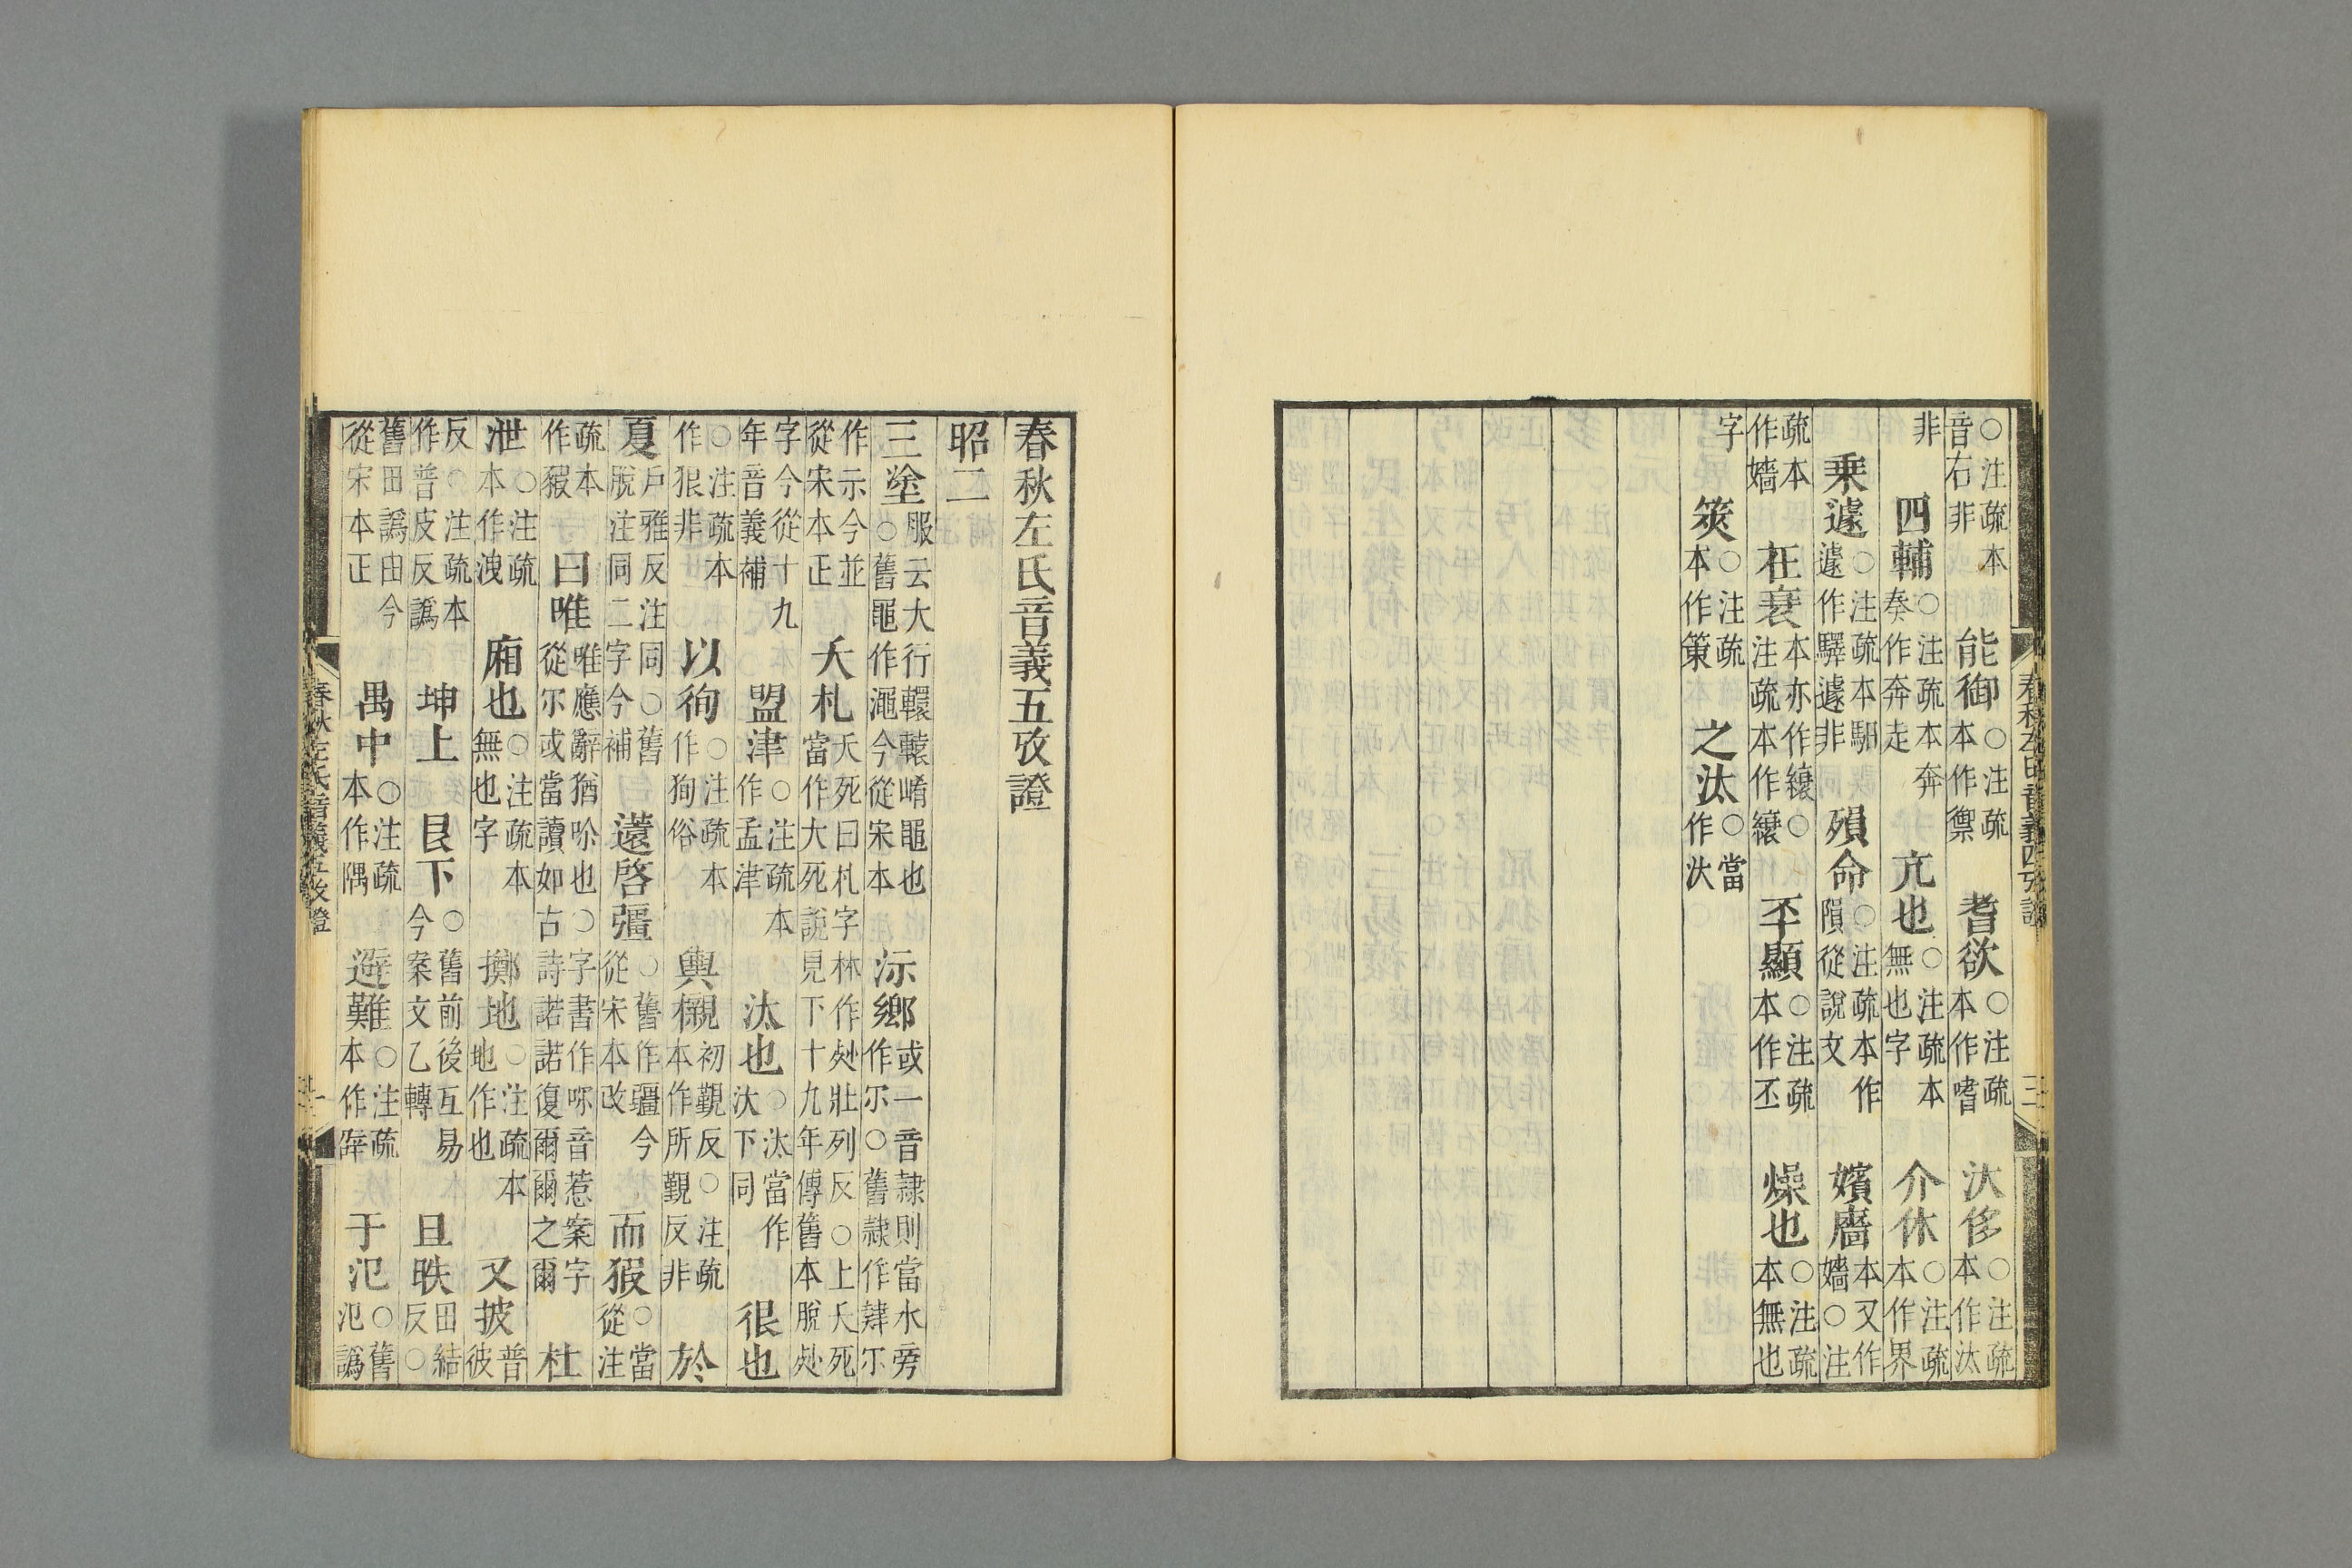 ○注疏本音右非　能御○注疏本作禦　耆欲○注疏本作嗜　汏侈○注疏本作汰
非　四輔○注疏本奔奏作奔走　亢也○注疏本無也字　介休○注疏本作界
乗遽○注疏本馹遽作驛遽非　殞命○注疏本作隕從說文　嬪廧本又作嬙○注
疏本作嬙　衽衰本亦作縗○注疏本作縗　丕顯○注疏本作丕　燥也○注疏本無也
字　筴○注疏本作策　之汰○當作汏
春秋左氏音義四攷證　三
春秋左氏音義五攷證
昭二
三塗服云大行轘轅崤黽也○舊黽作澠今從宋本　沶鄉或一音隷則當水旁作尓○舊隷作肄尓
作示今並從宋本正　夭札夭死曰札字林作𣧑壯列反○上夭死當作大死說見下十九年傳舊本脫𣧑
字今從十九年音義補　盟津○注疏本作孟津　汰也○汰當作汏下同　很也
○注疏本作狠非　以徇○注疏本作狥俗　輿櫬初覲反○注疏本作所覲反非　於
夏戶雅反注同○舊脫注同二字今補　薳啓彊○舊作疆今從宋本改　而猳○當從注
疏本作豭　曰唯唯應辭猶吟也○字書作𠰷音惹案字從尓或當讀如古詩諾諾復爾爾之爾　杜
泄○注疏本作洩　廂也○注疏本無也字　擲地○注疏本地作也　又披普彼
反○注疏本作普皮反譌　坤上　艮下○舊前後互易今案文乙轉　且昳田結反○
舊田譌由今從宋本正　禺中○注疏本作隅　避難○注疏本作辟　于氾○舊氾譌
春秋左氏音義五攷證　一